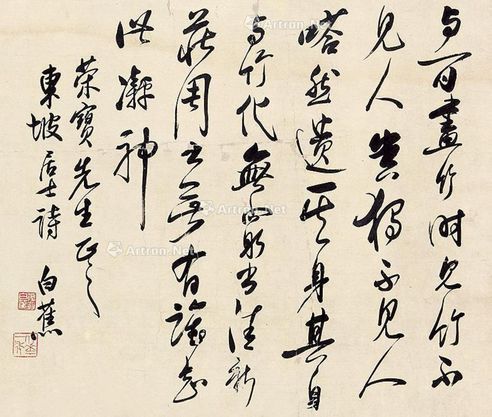 与可畫竹时見竹不
見人豈獨不見人
嗒然遺其身其身
与竹化無窮出清新
莊周世無有誰知
此凝神
榮寶先生正之
東坡居士詩 白蕉
Artron.Net
Artron.Net
Artron.Net
Artron.Net